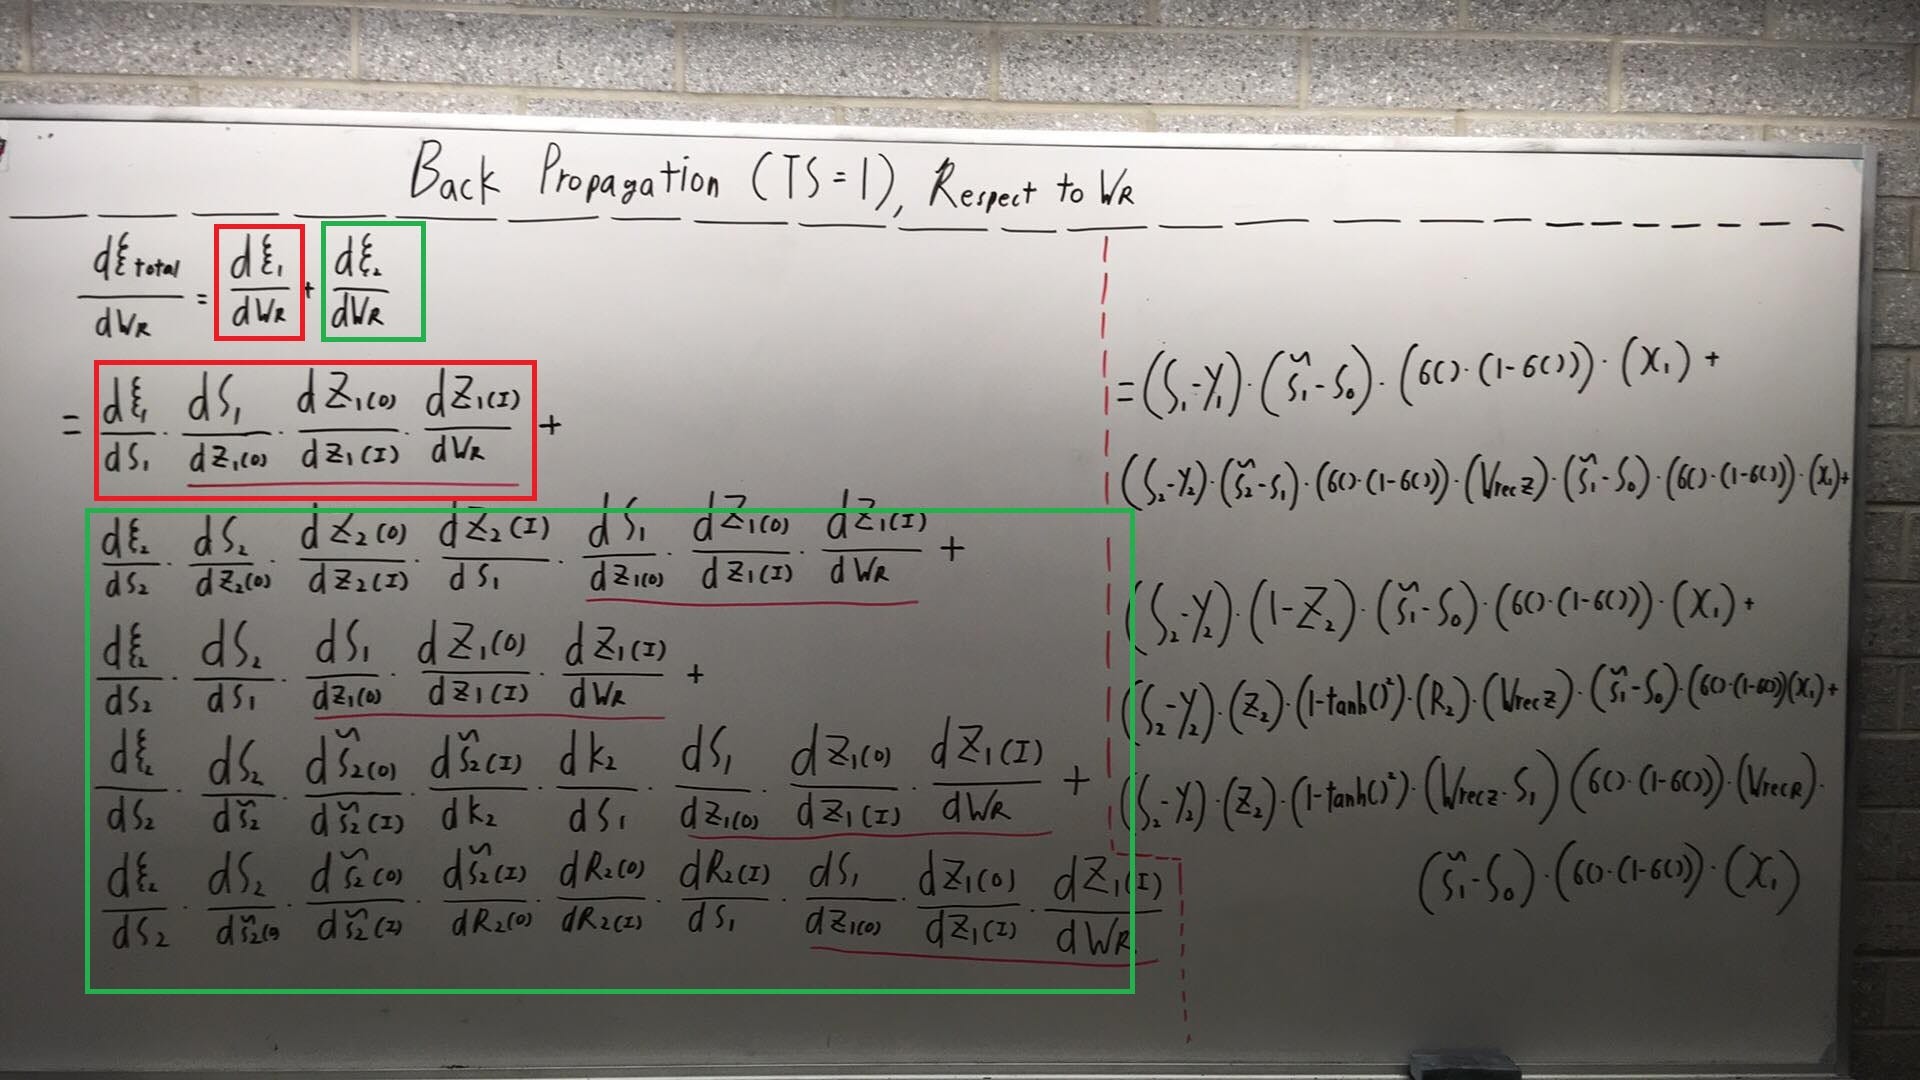 Back Propagation (TS=1), Respect to WR
dξtotal/dWR = dξ1/dWR + dξ2/dWR
= dξ1/dS1 · dS1/dZ1(O) · dZ1(O)/dZ1(I) · dZ1(I)/dWR +
dξ2/dS2 · dS2/dZ2(O) · dZ2(O)/dZ2(I) · dZ2(I)/dS1 · dS1/dZ1(O) · dZ1(O)/dZ1(I) · dZ1(I)/dWR +
dξ2/dS2 · dS2/dS1 · dS1/dZ1(O) · dZ1(O)/dZ1(I) · dZ1(I)/dWR +
dξ2/dS2 · dS2/dS̃2 · dS̃2(O)/dS̃2(I) · dS̃2(I)/dk2 · dk2/dS1 · dS1/dZ1(O) · dZ1(O)/dZ1(I) · dZ1(I)/dWR +
dξ2/dS2 · dS2/dS̃2(O) · dS̃2(O)/dS̃2(I) · dS̃2(I)/dR2(O) · dR2(O)/dR2(I) · dR2(I)/dS1 · dS1/dZ1(O) · dZ1(O)/dZ1(I) · dZ1(I)/dWR
= (S1-Y1) · (S̃1-S0) · (σ() · (1-σ())) · (X1) +
(S2-Y2) · (S̃2-S1) · (σ() · (1-σ())) · (Wrecz) · (S̃1-S0) · (σ() · (1-σ())) · (X1) +
(S2-Y2) · (1-Z2) · (S̃1-S0) · (σ() · (1-σ())) · (X1) +
(S2-Y2) · (Z2) · (1-tanh()²) · (R2) · (Wrecz) · (S̃1-S0) · (σ() · (1-σ())) (X1) +
(S2-Y2) · (Z2) · (1-tanh()²) · (Wrecz · S1) (σ() · (1-σ())) · (WrecR) ·
(S̃1-S0) · (σ() · (1-σ())) · (X1)